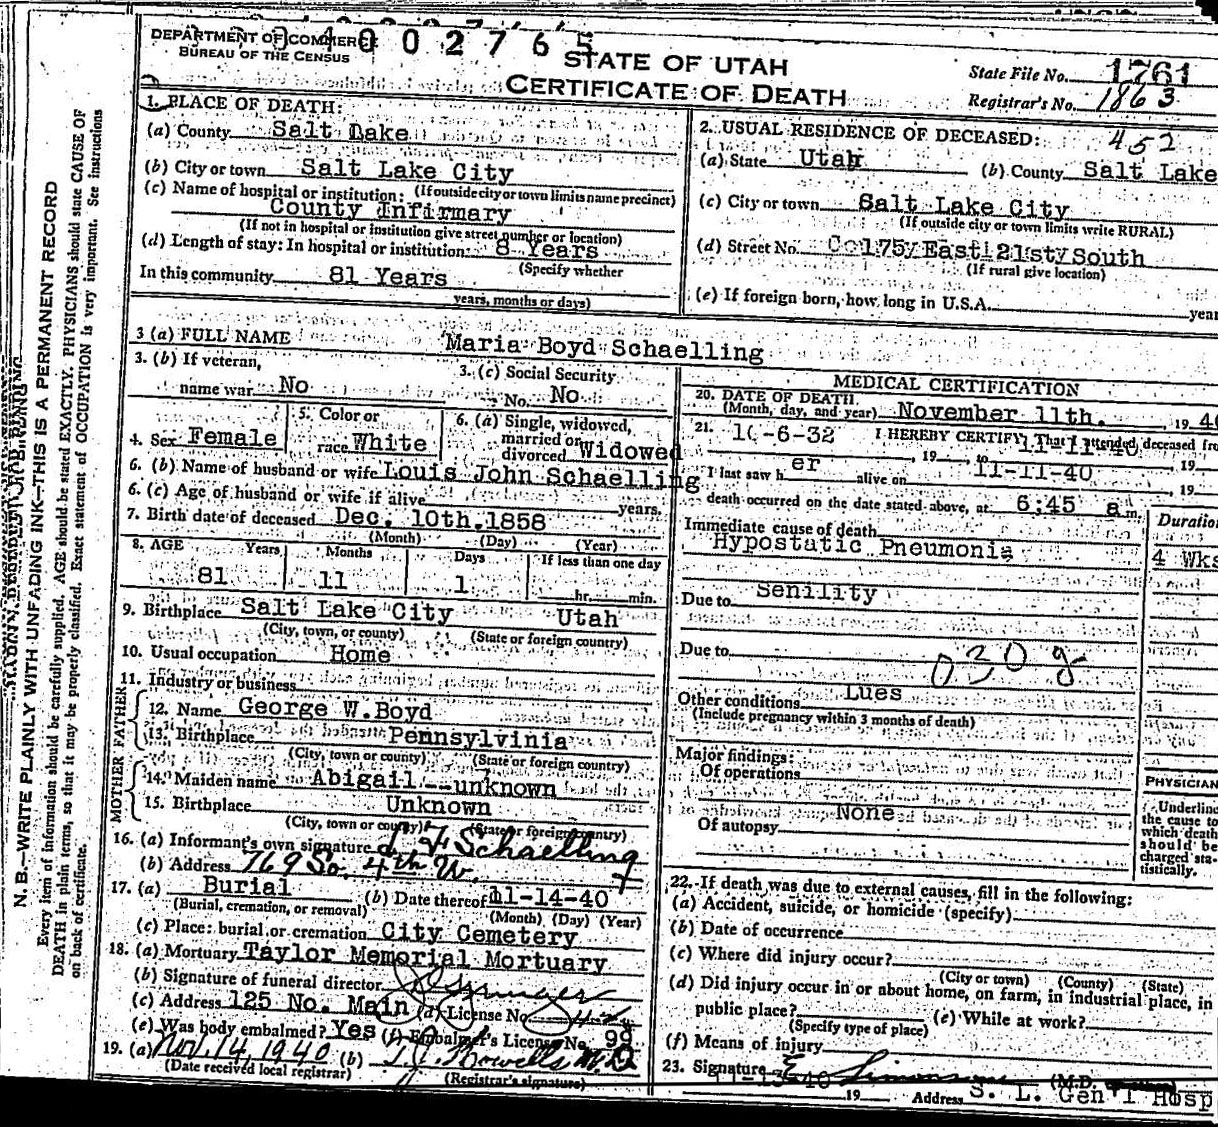 DEPARTMENT OF COMMERCE
BUREAU OF THE CENSUS
0 4 0 0 2 7 6 5
STATE OF UTAH
CERTIFICATE OF DEATH
State File No. 1761
Registrar's No. 1863
1. PLACE OF DEATH:
(a) County Salt Lake
(b) City or town Salt Lake City
(If outside city or town limits name precinct)
(c) Name of hospital or institution:
County Infirmary
(If not in hospital or institution give street number or location)
(d) Length of stay: In hospital or institution: 8 Years
(Specify whether
In this community 81 Years
years, months or days)
2. USUAL RESIDENCE OF DECEASED: 452
(a) State Utah (b) County Salt Lake
(c) City or town Salt Lake City
(If outside city or town limits write RURAL)
(d) Street No. 175 East 21st South
(If rural give location)
(e) If foreign born, how long in U.S.A. year
3 (a) FULL NAME Maria Boyd Schaelling
3. (b) If veteran,
name war No
3. (c) Social Security
No. No
4. Sex Female
5. Color or
race White
6. (a) Single, widowed,
married or
divorced Widowed
6. (b) Name of husband or wife Louis John Schaelling
6. (c) Age of husband or wife if alive years.
7. Birth date of deceased Dec. 10th, 1858
(Month) (Day) (Year)
8. AGE Years Months Days If less than one day
81 11 1 hr. min.
9. Birthplace Salt Lake City Utah
(City, town, or county) (State or foreign country)
10. Usual occupation Home
11. Industry or business
FATHER
12. Name George W. Boyd
13. Birthplace Pennsylvinia
(City, town or county) (State or foreign country)
MOTHER
14. Maiden name Abigail --unknown
15. Birthplace Unknown
(City, town or county) (State or foreign country)
16. (a) Informant's own signature L F Schaelling
(b) Address 769 So. 4th W.
17. (a) Burial (b) Date thereof 11-14-40
(Burial, cremation, or removal) (Month) (Day) (Year)
(c) Place: burial or cremation City Cemetery
18. (a) Mortuary Taylor Memorial Mortuary
(b) Signature of funeral director
(c) Address 125 No. Main (d) License No.
(e) Was body embalmed? Yes (f) Embalmer's License No. 99
19. (a) Nov. 14, 1940 (b) Howells M.D.
(Date received local registrar) (Registrar's signature)
MEDICAL CERTIFICATION
20. DATE OF DEATH
(Month, day, and year) November 11th. , 19 40
21. I HEREBY CERTIFY, That I attended deceased fro
10-6-32 , 19 to 11-11-40 , 19
I last saw h er alive on 11-11-40 , 19
death occurred on the date stated above, at 6:45 a m.
Immediate cause of death Duration
Hypostatic Pneumonia 4 Wks
Due to Senility
Due to
030 g
Other conditions Lues
(Include pregnancy within 3 months of death)
Major findings:
Of operations
None
Of autopsy
PHYSICIAN
Underline
the cause to
which death
should be
charged sta-
tistically.
22. If death was due to external causes, fill in the following:
(a) Accident, suicide, or homicide (specify)
(b) Date of occurrence
(c) Where did injury occur?
(City or town) (County) (State)
(d) Did injury occur in or about home, on farm, in industrial place, in
public place? (e) While at work?
(Specify type of place)
(f) Means of injury
23. Signature E (M.D.
11-13-40 19 Address S. L. Gen'l Hosp
N. B.—WRITE PLAINLY WITH UNFADING INK—THIS IS A PERMANENT RECORD
Every item of information should be carefully supplied. AGE should be stated EXACTLY. PHYSICIANS should state CAUSE OF
DEATH in plain terms, so that it may be properly classified. Exact statement of OCCUPATION is very important. See instructions
on back of certificate.